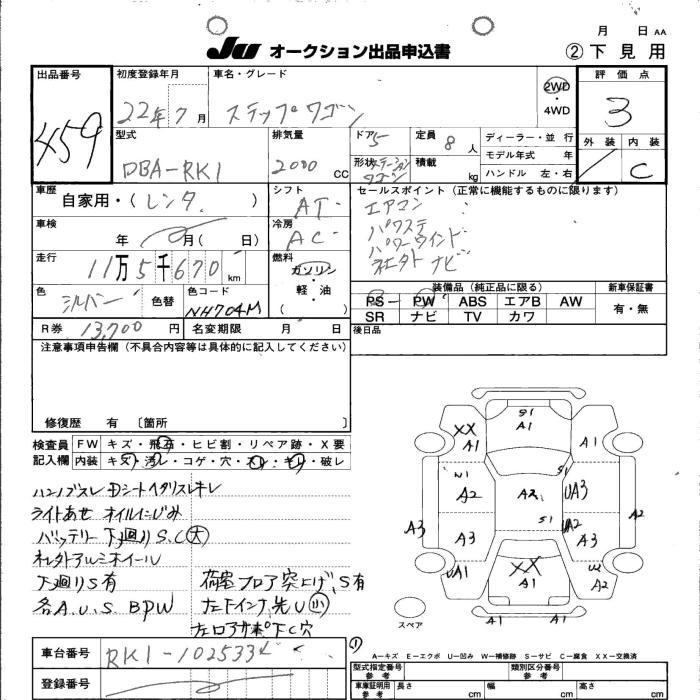 月 日 AA
JU オークション出品申込書 ② 下見用
出品番号 初度登録年月 車名・グレード 評価点
459 22年7月 ステップワゴン 2WD・4WD 3
外装 内装
C
型式 排気量 ドア 定員 ディーラー・並行
DBA-RK1 2000 CC 5 8人 モデル年式 年
形状 ステーションワゴン 積載 kg ハンドル 左・右
車歴 シフト セールスポイント (正常に機能するものに限ります)
自家用・(レンタ.) AT エアコン
パワステ
車検 冷房 パワーウインド
年 月( 日) AC 社外 ナビ
走行 燃料
11万5千670km ガソリン・軽・油
装備品 (純正品に限る) 新車保証書
色 色替 色コード PS PW ABS エアB AW 有・無
シルバー NH704M SR ナビ TV カワ
R券 13,700円 名変期限 月 日 後日品
注意事項申告欄 (不具合内容等は具体的に記入してください)
修復歴 有 〔箇所 〕
検査員 FW キズ・飛石・ヒビ割・リペア跡・X要
記入欄 内装 キズ・汚レ・コゲ・穴・スレ・キレ・破レ
S1
XX A1 A1 A1
W1 S1
A2 A2 UA3
S1 UA2
A3 A3 A3 A2
UA1 XX A1 W2 A2
A1 A1
スペア
ライトあせ オイルにじみ
バッテリー 下廻りS.C大
社外アルミホイール
下廻りS有 荷室フロア突上げ.S有
各A.U.S BPW
車台番号 RK1-1025334
登録番号
A-キズ E-エクボ U-凹み W-補修跡 S-サビ C-腐食 XX-交換済
型式指定番号 参考 類別区分番号 参考
車庫証明用 参考 長さ cm 幅 cm 高さ cm